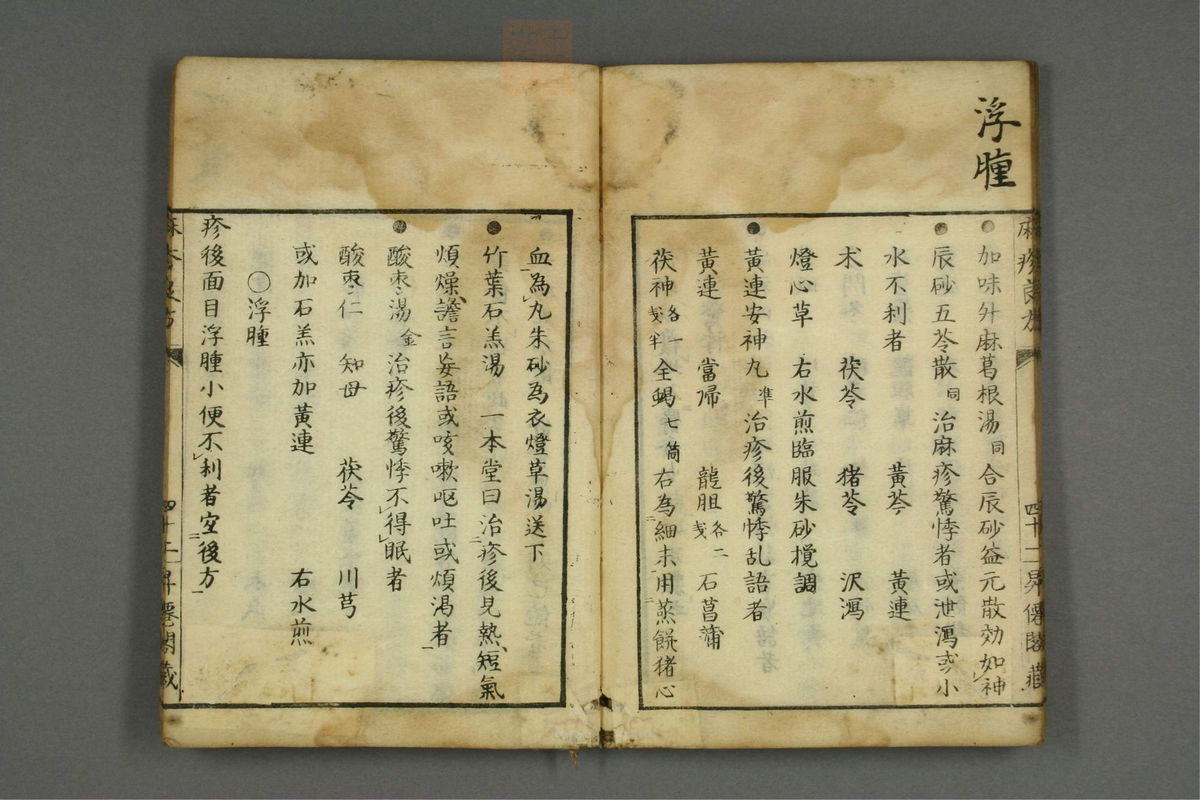 浮腫
加味升麻葛根湯同合辰砂益元散効如神
辰砂五苓散同治麻疹驚悸者或泄瀉或小
水不利者 黃芩 黃連
术 茯苓 猪苓 沢瀉
燈心草 右水煎臨服朱砂攪調
黃連安神丸準治疹後驚悸乱語者
黃連 當帰 龍胆各二戋 石菖蒲
茯神各一戋半 全蝎七箇 右為細末用蒸餅猪心
四十二 昇僊閣藏
血為丸朱砂為衣燈草湯送下
竹葉石羔湯一本堂曰治疹後見熱短氣
煩燥譫言妄語或咳嗽呕吐或煩渇者
酸枣湯金治疹後驚悸不得眠者
酸枣仁 知母 茯苓 川芎
或加石羔亦加黃連 右水煎
○浮腫
疹後面目浮腫小便不利者空後方